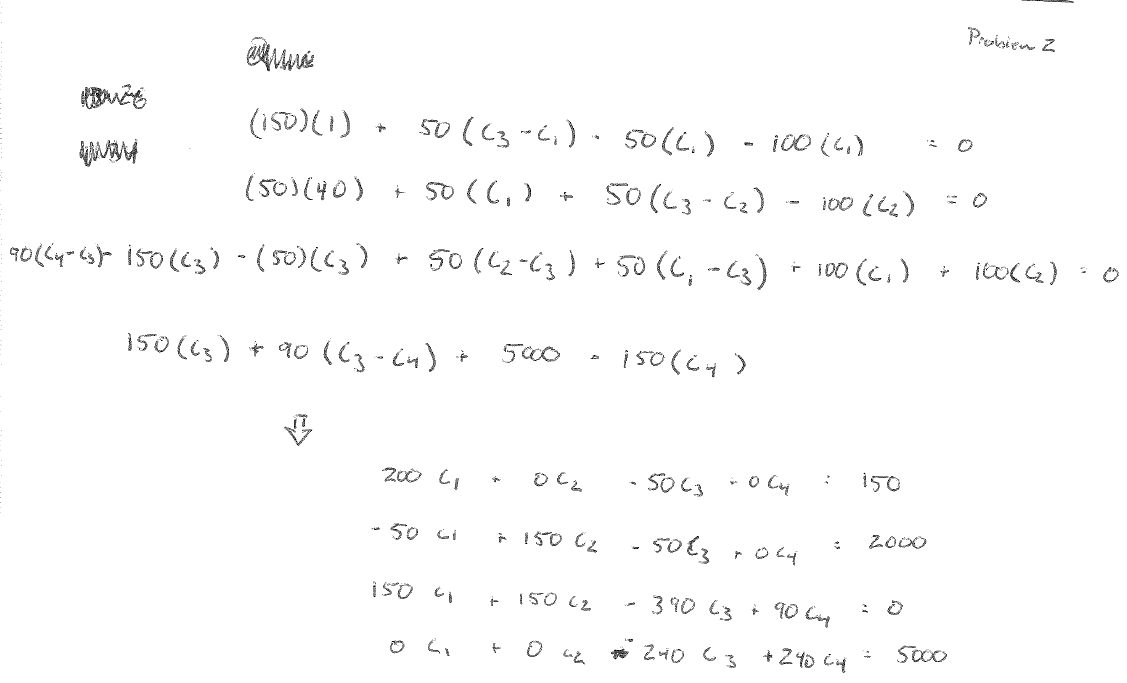 Problem 2
(150)(1) + 50(C₃ - C₁) - 50(C₁) - 100(C₁) = 0
(50)(40) + 50(C₁) + 50(C₃ - C₂) - 100(C₂) = 0
90(C₄-C₃)- 150(C₃) - (50)(C₃) + 50(C₂-C₃) + 50(C₁-C₃) + 100(C₁) + 100(C₂) = 0
150(C₃) + 90(C₃-C₄) + 5000 - 150(C₄)
⇓
200 C₁ + 0C₂ - 50C₃ + 0C₄ = 150
-50 C₁ + 150 C₂ - 50C₃ + 0C₄ = 2000
150 C₁ + 150 C₂ - 390 C₃ + 90C₄ = 0
0 C₁ + 0 C₂ - 240 C₃ + 240 C₄ = 5000